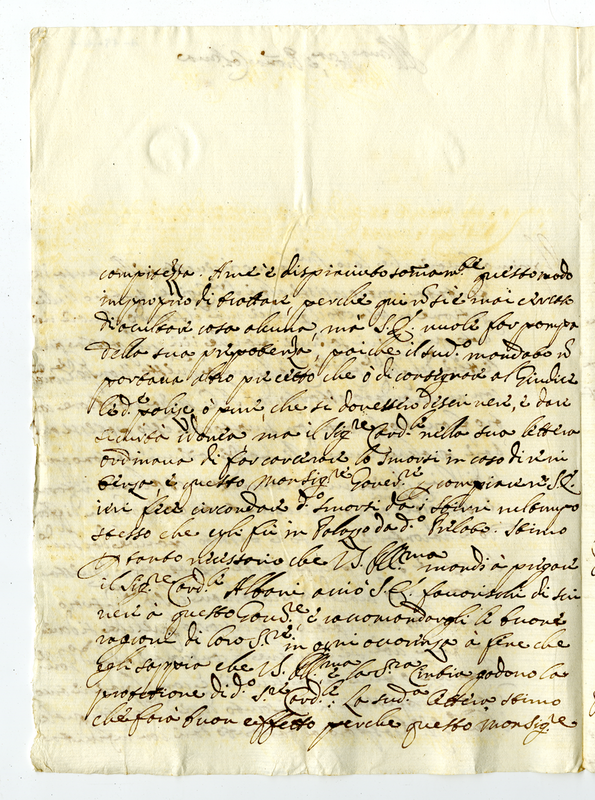 compitezza. Ame è dispiaciuto som̄am.te questo modo
improprio di trattare, perche qui n̄ si è mai
di ocultare cosa alcuna, mà S. E. vuole far pompa
della sua prepotenza, poiche il sud.o mandato n̄
portava altro precetto che ò di consegnare al Giudice
le d.e polise ò pure, che si dovessero descrivere, e dare
sicurtà idonea, ma il Sig.re Card.le nella sua lettera
ordinava di far carcerare lo Smorti in caso di reni
tenza e questo Monsig.re Gover.re compiacere S. E.
ieri fece circondare d.o Smorti da i sbirri nel tempo
stesso che egli fù in Palazzo da d.o Prelato. Stimo
tanto necessario che V.S. Ill.ma mandi à pregare
il Sig.re Card.le Albani acciò S. E. favorischi di scri
vere à questo Gov.re, e raccomandargli le buone
ragioni di loro SS.re in ogni occorenza à fine che
egli sappia che V.S. Ill.ma e la S.ra Cintia godono la
protezione di d.o S.re Card.le. La sud.a lettera stimo
che farà buon effetto perche questo Monsig.re